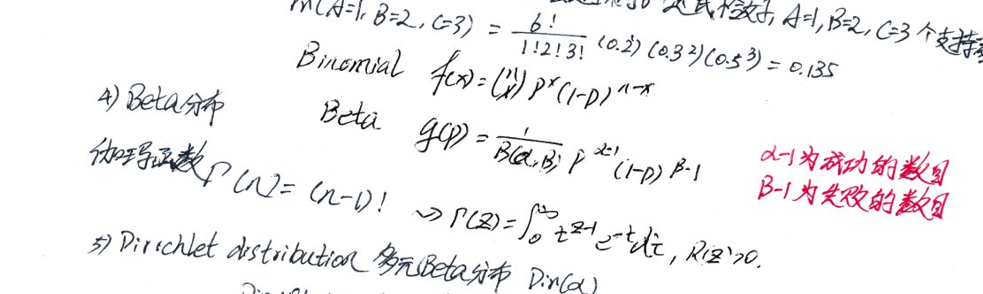 A=1, B=2, C=3 个支持
m(A=1, B=2, C=3) = 6!/1!2!3! (0.2¹) (0.3²) (0.5³) = 0.135
Binomial f(x) = (n x) p^x (1-p)^{n-x}
4) Beta分布
Beta g(p) = 1/B(α,β) p^{α-1} (1-p)^{β-1}
α-1为成功的数目
β-1为失败的数目
伽玛函数 Γ(n) = (n-1)! ⇝ Γ(z) = ∫₀^∞ t^{z-1} e^{-t} dt, R(z)>0.
5) Dirichlet distribution 多元Beta分布 Dir(α)